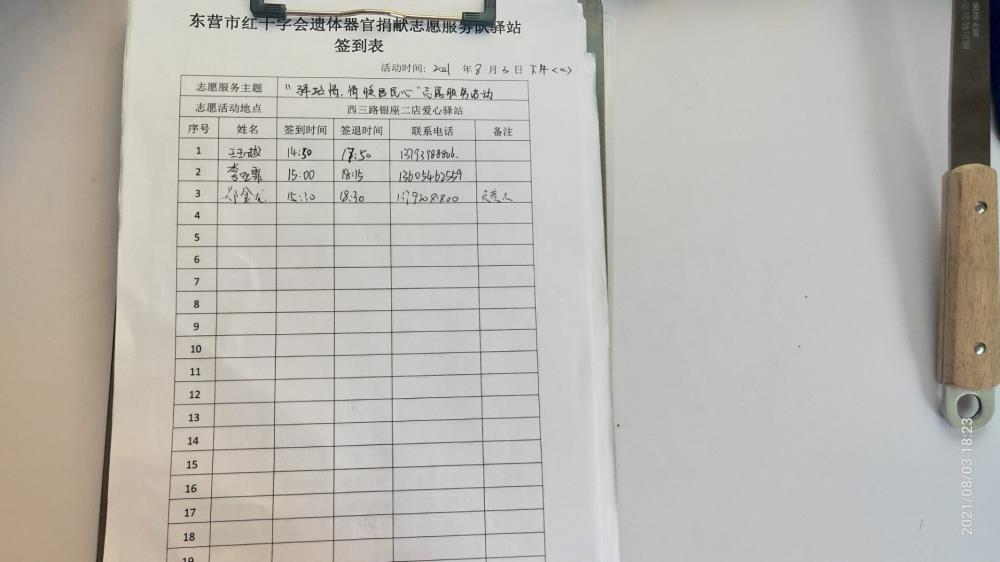 东营市红十字会遗体器官捐献志愿服务队驿站
签到表
活动时间：2021 年 8 月 3 日 下午<二>
志愿服务主题 "驿站情，情暖民心"志愿服务活动
志愿活动地点 西三路银座二店爱心驿站
序号 姓名 签到时间 签退时间 联系电话 备注
1 14:50 17:50
2 15:00 18:15 13605462569
3 郑金龙 15:30 18:30 13792081800 负责人
4
5
6
7
8
9
10
11
12
13
14
15
16
17
18
19
2021/08/03 18:23